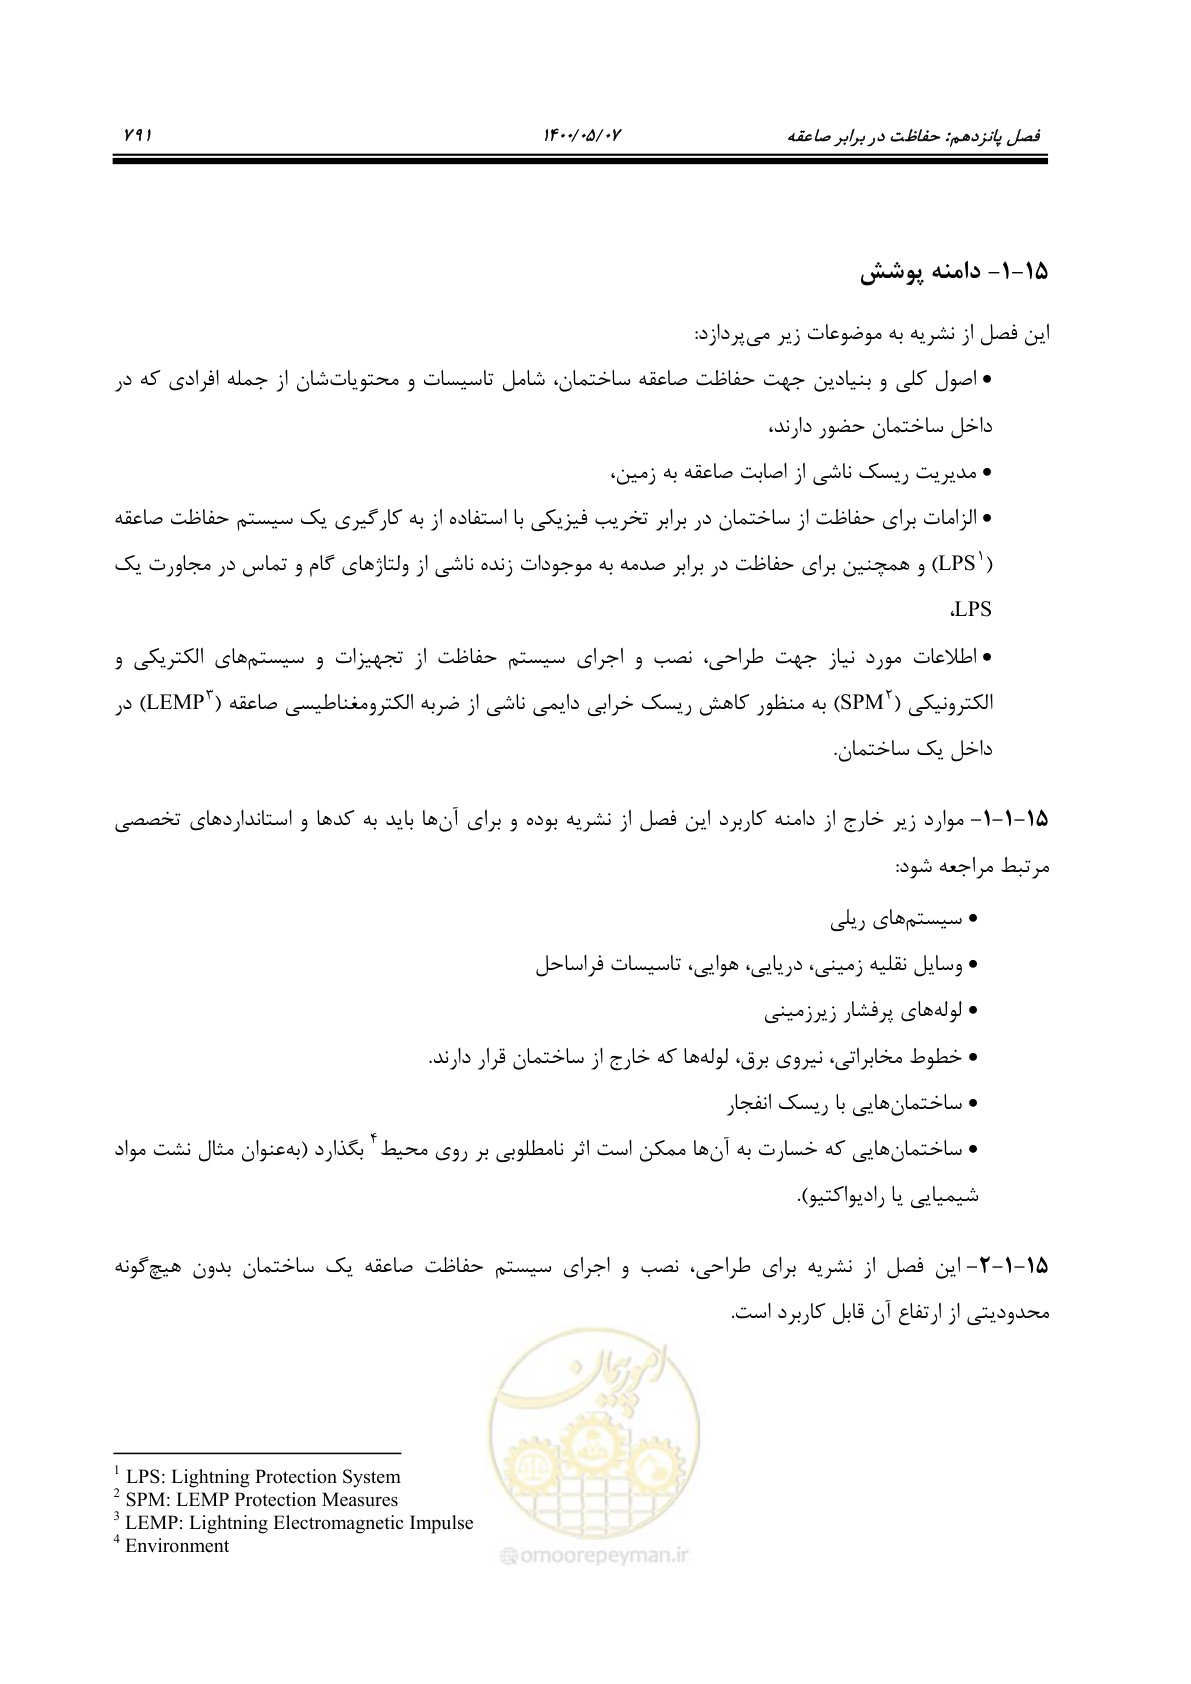 فصل پانزدهم: حفاظت در برابر صاعقه ۱۴۰۰/۰۵/۰۷ ۷۹۱
۱۵-۱- دامنه پوشش
این فصل از نشریه به موضوعات زیر می‌پردازد:
• اصول کلی و بنیادین جهت حفاظت صاعقه ساختمان، شامل تاسیسات و محتویات‌شان از جمله افرادی که در
داخل ساختمان حضور دارند،
• مدیریت ریسک ناشی از اصابت صاعقه به زمین،
• الزامات برای حفاظت از ساختمان در برابر تخریب فیزیکی با استفاده از به کارگیری یک سیستم حفاظت صاعقه
(LPS۱) و همچنین برای حفاظت در برابر صدمه به موجودات زنده ناشی از ولتاژهای گام و تماس در مجاورت یک
LPS،
• اطلاعات مورد نیاز جهت طراحی، نصب و اجرای سیستم حفاظت از تجهیزات و سیستم‌های الکتریکی و
الکترونیکی (SPM۲) به منظور کاهش ریسک خرابی دایمی ناشی از ضربه الکترومغناطیسی صاعقه (LEMP۳) در
داخل یک ساختمان.
۱۵-۱-۱- موارد زیر خارج از دامنه کاربرد این فصل از نشریه بوده و برای آن‌ها باید به کدها و استانداردهای تخصصی
مرتبط مراجعه شود:
• سیستم‌های ریلی
• وسایل نقلیه زمینی، دریایی، هوایی، تاسیسات فراساحل
• لوله‌های پرفشار زیرزمینی
• خطوط مخابراتی، نیروی برق، لوله‌ها که خارج از ساختمان قرار دارند.
• ساختمان‌هایی با ریسک انفجار
• ساختمان‌هایی که خسارت به آن‌ها ممکن است اثر نامطلوبی بر روی محیط۴ بگذارد (به‌عنوان مثال نشت مواد
شیمیایی یا رادیواکتیو).
۱۵-۱-۲- این فصل از نشریه برای طراحی، نصب و اجرای سیستم حفاظت صاعقه یک ساختمان بدون هیچ‌گونه
محدودیتی از ارتفاع آن قابل کاربرد است.
امور پیمان
1 LPS: Lightning Protection System
2 SPM: LEMP Protection Measures
3 LEMP: Lightning Electromagnetic Impulse
4 Environment
@omoorepeyman.ir